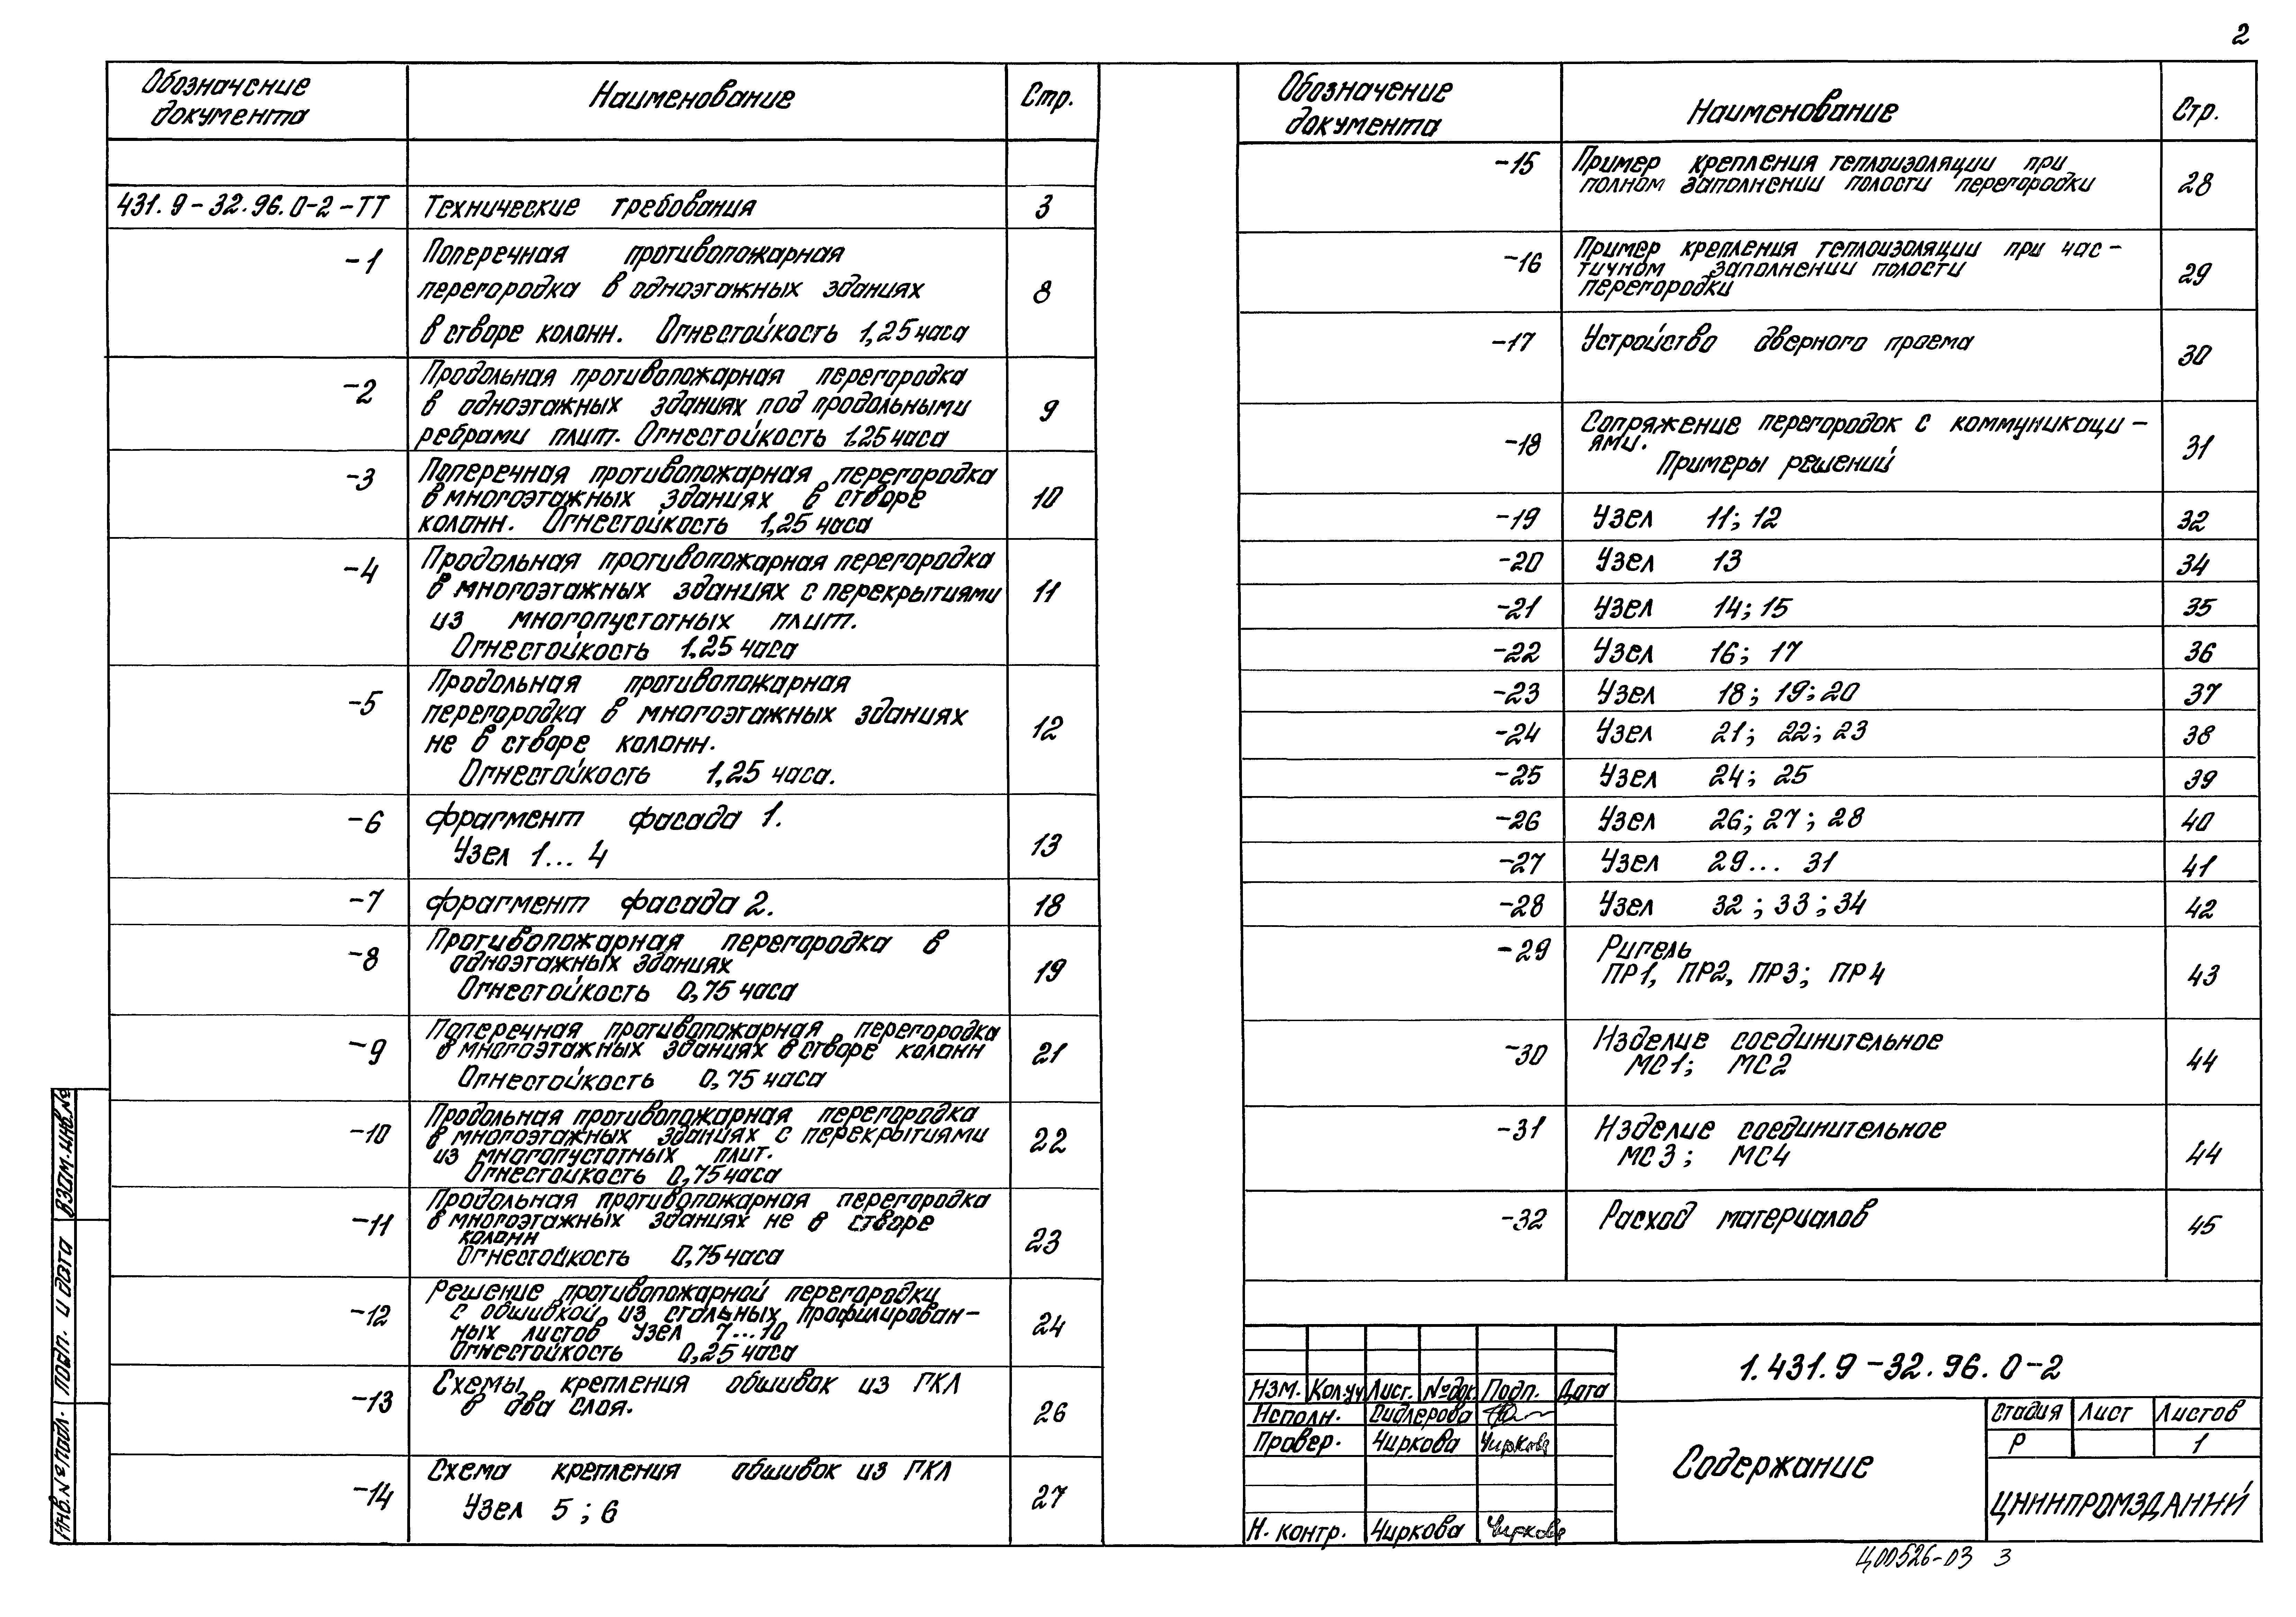 2
Обозначение документа Наименование Стр.
431.9-32.96.0-2-ТТ Технические требования 3
-1 Поперечная противопожарная
перегородка в одноэтажных зданиях 8
в створе колонн. Огнестойкость 1,25 часа
-2 Продольная противопожарная перегородка
в одноэтажных зданиях под продольными 9
ребрами плит. Огнестойкость 1.25 часа
-3 Поперечная противопожарная перегородка
в многоэтажных зданиях в створе 10
колонн. Огнестойкость 1,25 часа
-4 Продольная противопожарная перегородка
в многоэтажных зданиях с перекрытиями 11
из многопустотных плит.
Огнестойкость 1.25 часа
-5 Продольная противопожарная
перегородка в многоэтажных зданиях 12
не в створе колонн.
Огнестойкость 1,25 часа.
-6 Фрагмент фасада 1.
Узел 1... 4 13
-7 Фрагмент фасада 2. 18
-8 Противопожарная перегородка в
одноэтажных зданиях 19
Огнестойкость 0,75 часа
-9 Поперечная противопожарная перегородка
в многоэтажных зданиях в створе колонн 21
Огнестойкость 0,75 часа
-10 Продольная противопожарная перегородка
в многоэтажных зданиях с перекрытиями 22
из многопустотных плит.
Огнестойкость 0,75 часа
-11 Продольная противопожарная перегородка
в многоэтажных зданиях не в створе
колонн 23
Огнестойкость 0,75 часа
-12 Решение противопожарной перегородки
с обшивкой из стальных профилирован-
ных листов Узел 7...10 24
Огнестойкость 0,25 часа
-13 Схемы крепления обшивок из ГКЛ
в два слоя. 26
-14 Схема крепления обшивок из ГКЛ
Узел 5; 6 27
Обозначение документа Наименование Стр.
-15 Пример крепления теплоизоляции при
полном заполнении полости перегородки 28
-16 Пример крепления теплоизоляции при час-
тичном заполнении полости 29
перегородки
-17 Устройство дверного проема 30
-18 Сопряжение перегородок с коммуникаци-
ями. 31
Примеры решений
-19 Узел 11; 12 32
-20 Узел 13 34
-21 Узел 14; 15 35
-22 Узел 16; 17 36
-23 Узел 18; 19; 20 37
-24 Узел 21; 22; 23 38
-25 Узел 24; 25 39
-26 Узел 26; 27; 28 40
-27 Узел 29... 31 41
-28 Узел 32; 33; 34 42
-29 Ригель
ПР1, ПР2, ПР3; ПР4 43
-30 Изделие соединительное
МС1; МС2 44
-31 Изделие соединительное
МС3; МС4 44
-32 Расход материалов 45
1.431.9-32.96.0-2
Изм. Кол.уч Лист. №док. Подп. Дата
Исполн. Сидлерова
Провер. Чиркова Чиркова
Н. контр. Чиркова Чиркова
Содержание
Стадия Лист Листов
Р 1
ЦНИИПРОМЗДАНИЙ
Ц00526-03 3
Инв.№ подл. Подп. и дата Взам.инв.№